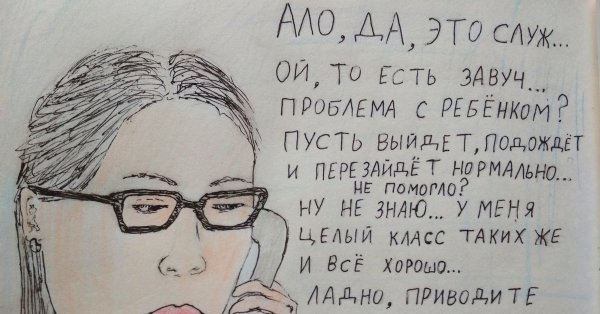 АЛО, ДА, ЭТО СЛУЖ...
ОЙ, ТО ЕСТЬ ЗАВУЧ...
ПРОБЛЕМА С РЕБЁНКОМ?
ПУСТЬ ВЫЙДЕТ, ПОДОЖДЁТ
И ПЕРЕЗАЙДЁТ НОРМАЛЬНО...
НЕ ПОМОГЛО?
НУ НЕ ЗНАЮ... У МЕНЯ
ЦЕЛЫЙ КЛАСС ТАКИХ ЖЕ
И ВСЁ ХОРОШО...
ЛАДНО, ПРИВОДИТЕ